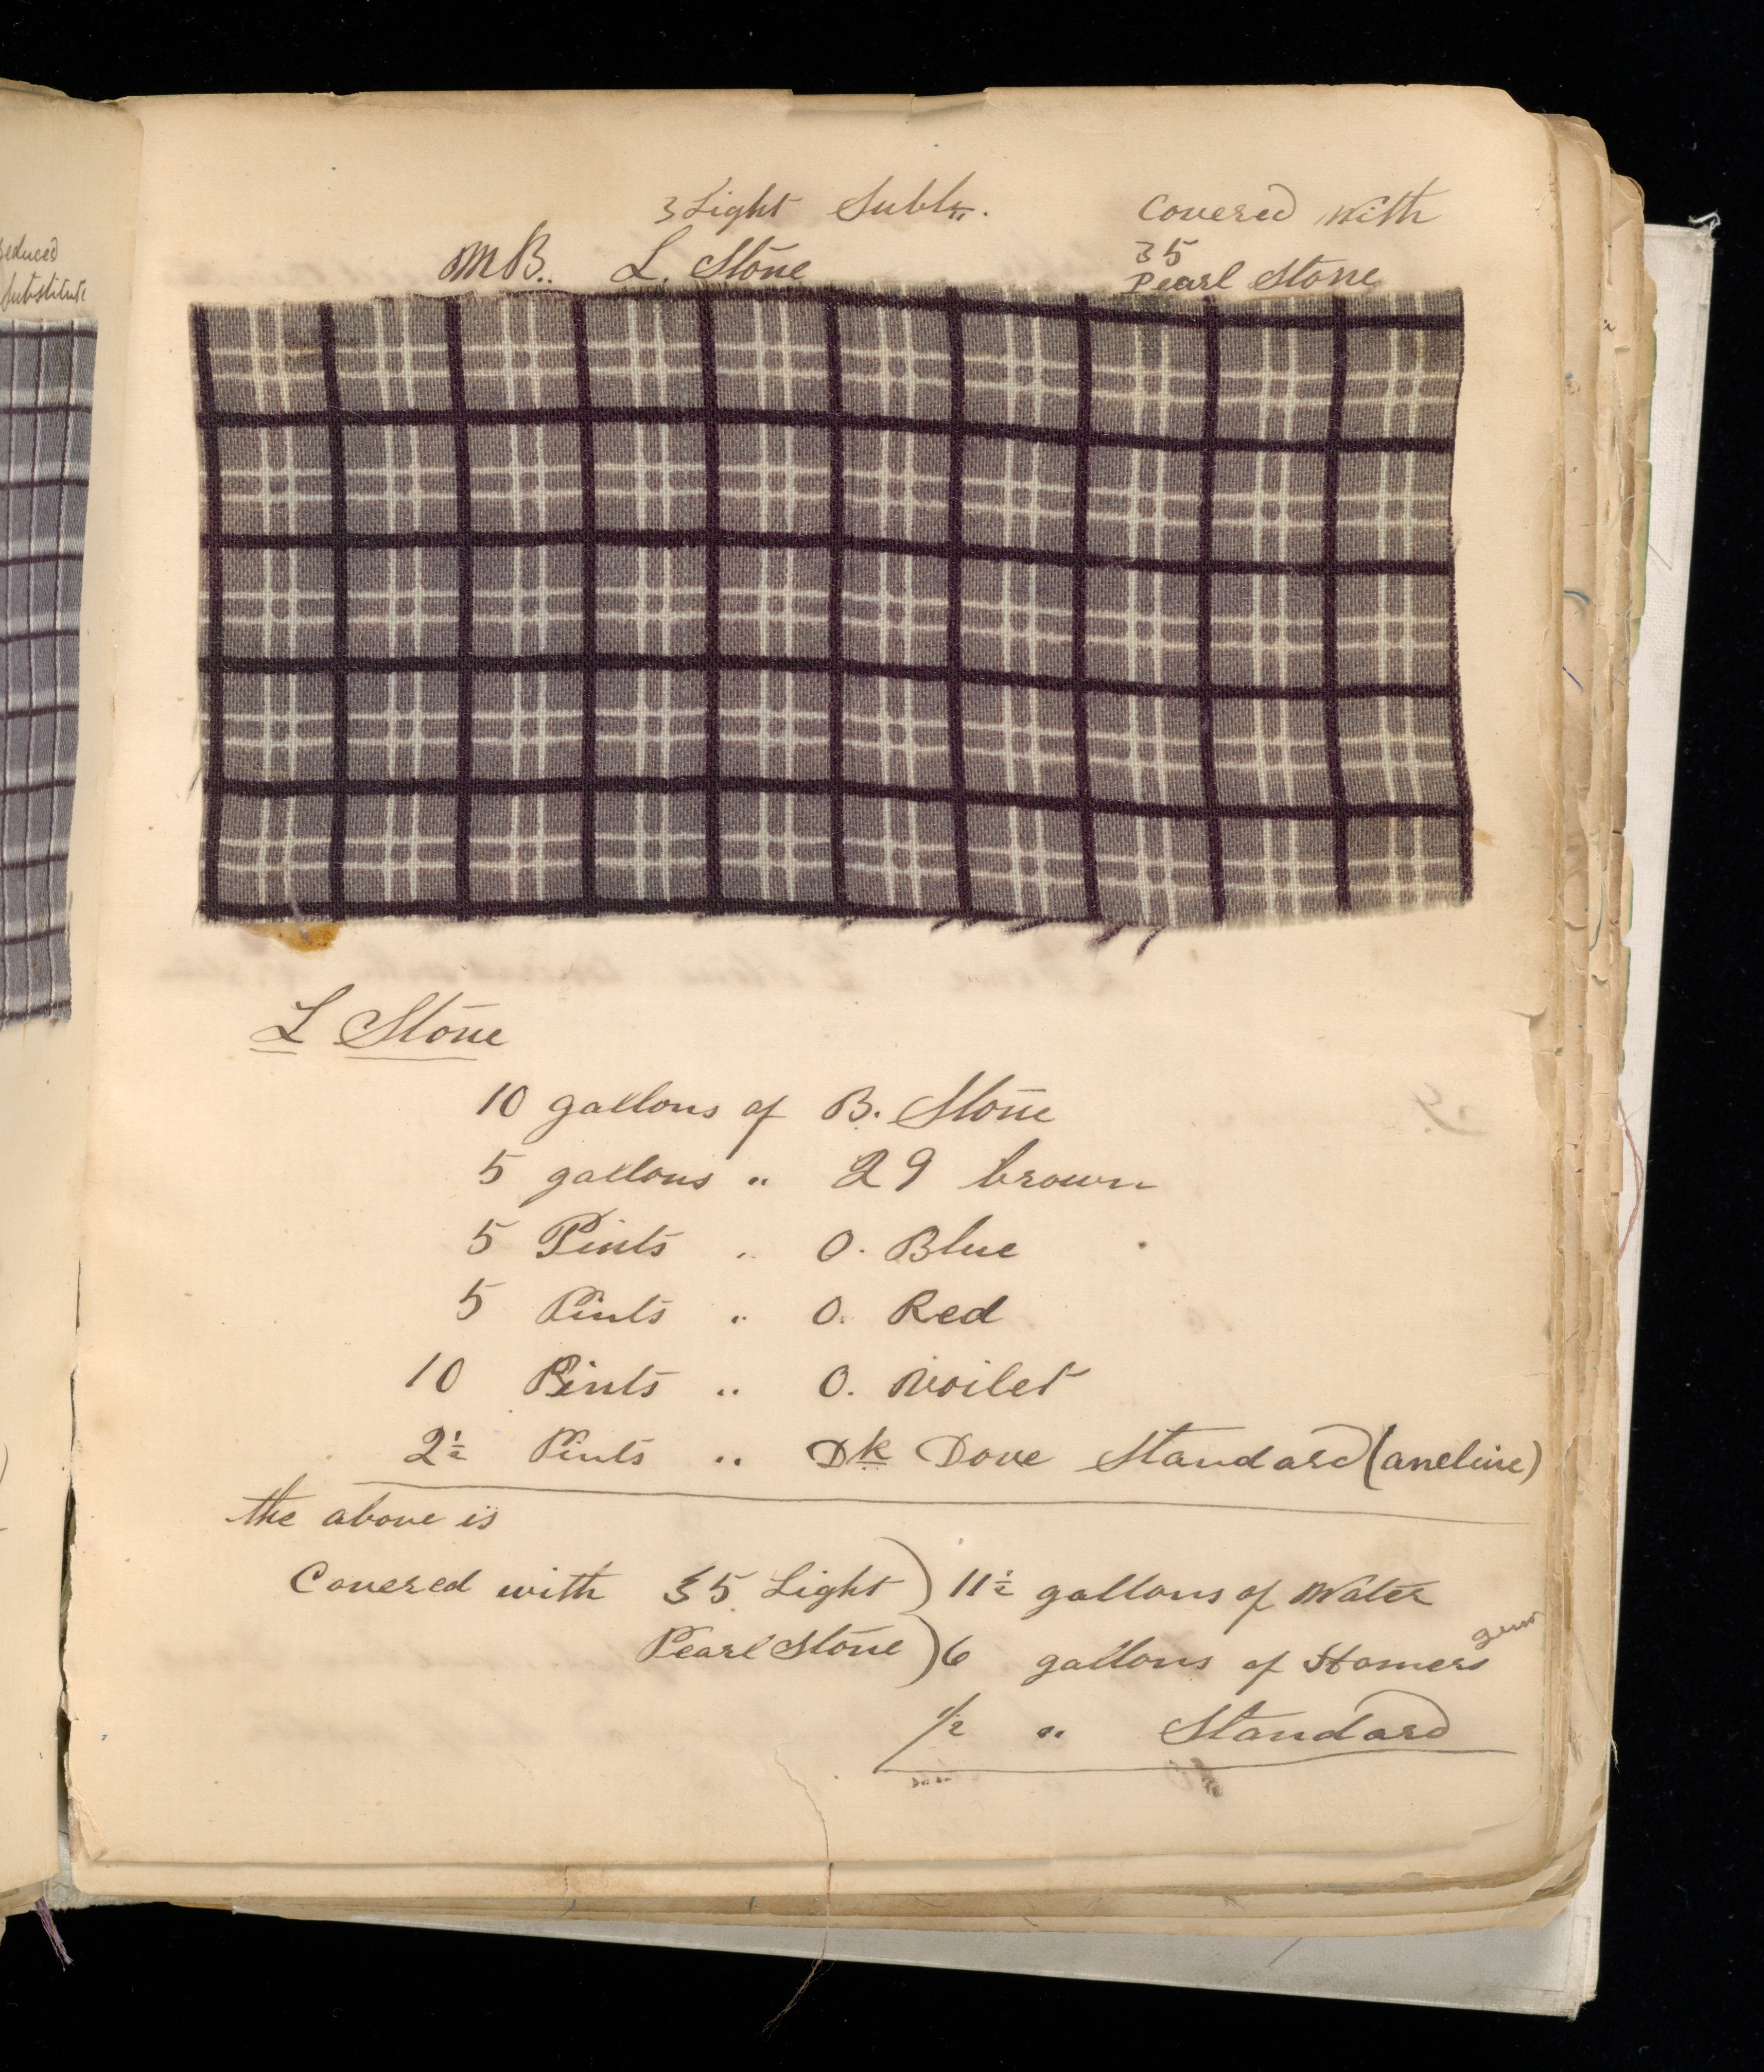 Reduced
Substitute
3 Light Subte.
Covered with
M B. L. Stone
35
Pearl Stone
L Stone
10 gallons of B. Stone
5 gallons " 29 brown
5 Pints " O. Blue
5 Pints " O. Red
10 Pints " O. Voilet
2½ Pints " Dk Dove Standard (aneline)
the above is
Covered with 35 Light ) 11½ gallons of Water
Pearl Stone ) 6 gallons of Homers gum
1/2 " Standard